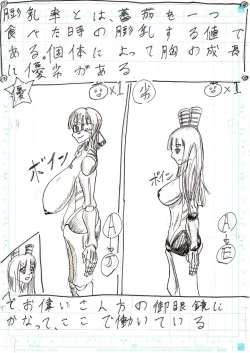 膨乳率とは、蕃茄を一つ
食べた時の膨乳する値で
ある。個体によって胸の成長
に優劣がある
優
×1
劣
×1
ボイン
ボイン
A→J
A→E
でお偉いさん方の御眼鏡に
かなって、ここで働いている